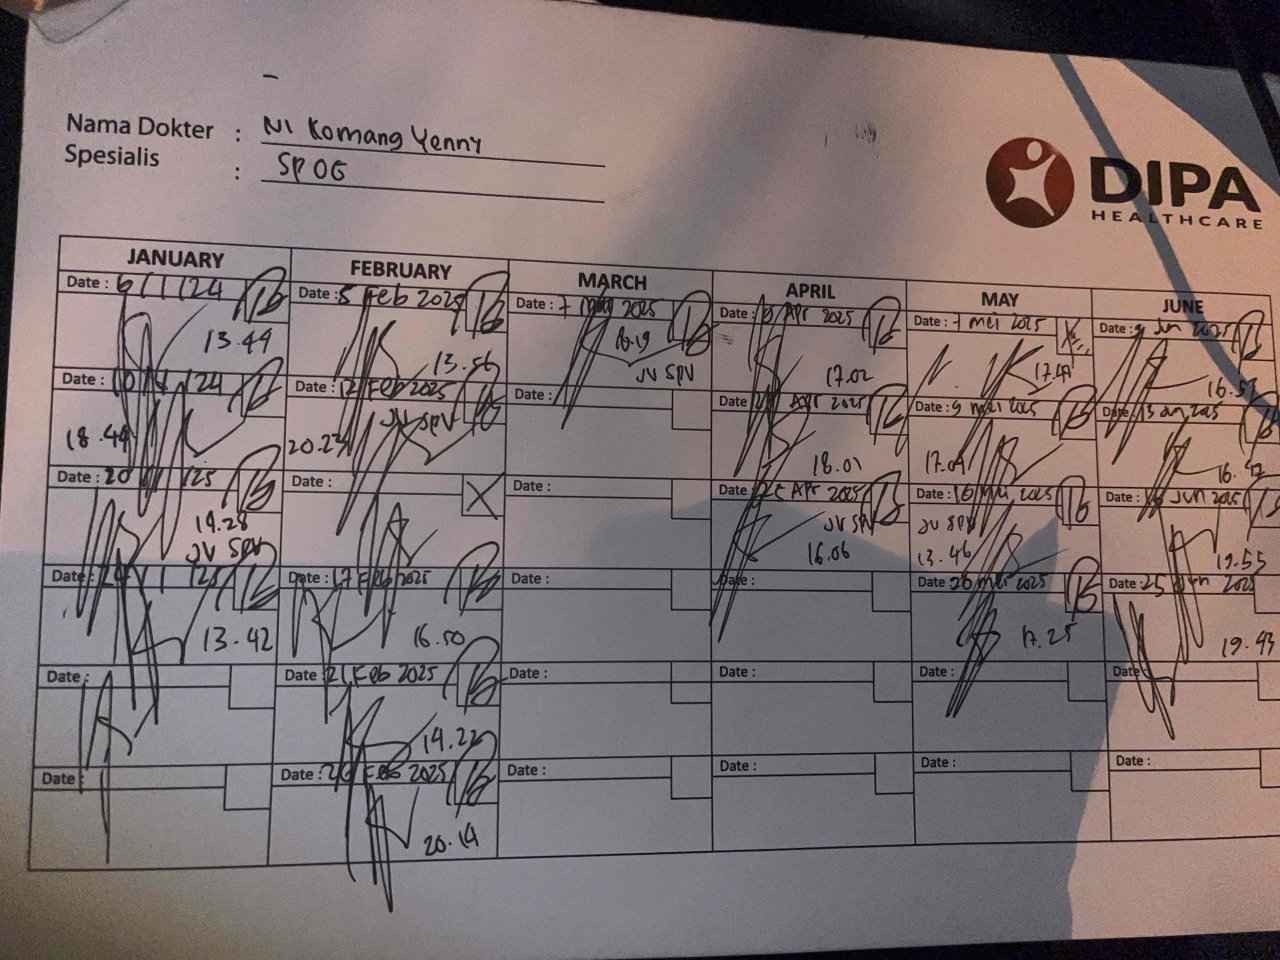 Nama Dokter : Ni Komang Yenny
Spesialis : SP OG
DIPA
HEALTHCARE
JANUARY
Date : 6/1/24
13.44
Date : 10/1/24
18.44
Date : 20 /25
14.28
JV SPV
Date : 24/1/25
13.42
Date :
Date :
FEBRUARY
Date : 5 Feb 2025
13.56
Date : 12 Feb 2025
JV SPV
Date :
Date : 17 Feb 2025
16.50
Date : 21 Feb 2025
14.22
Date : 26 Feb 2025
20.14
MARCH
Date : 7 2025
16.19
JV SPV
Date :
Date :
Date :
Date :
Date :
APRIL
Date : 9 Apr 2025
17.02
Date : Apr 2025
18.01
Date : Apr 2025
JV SPV
16.06
Date :
Date :
Date :
MAY
Date : 7 mei 2025
Date : 9 mei 2025
Date : 16 mei 2025
JV SPV
13.46
Date : 26 mei 2025
17.25
Date :
Date :
JUNE
Date : Jun 2025
Date : 13 Jun 2025
16.42
Date : Jun 2025
19.55
Date : 25 Jun 2025
19.43
Date :
Date :